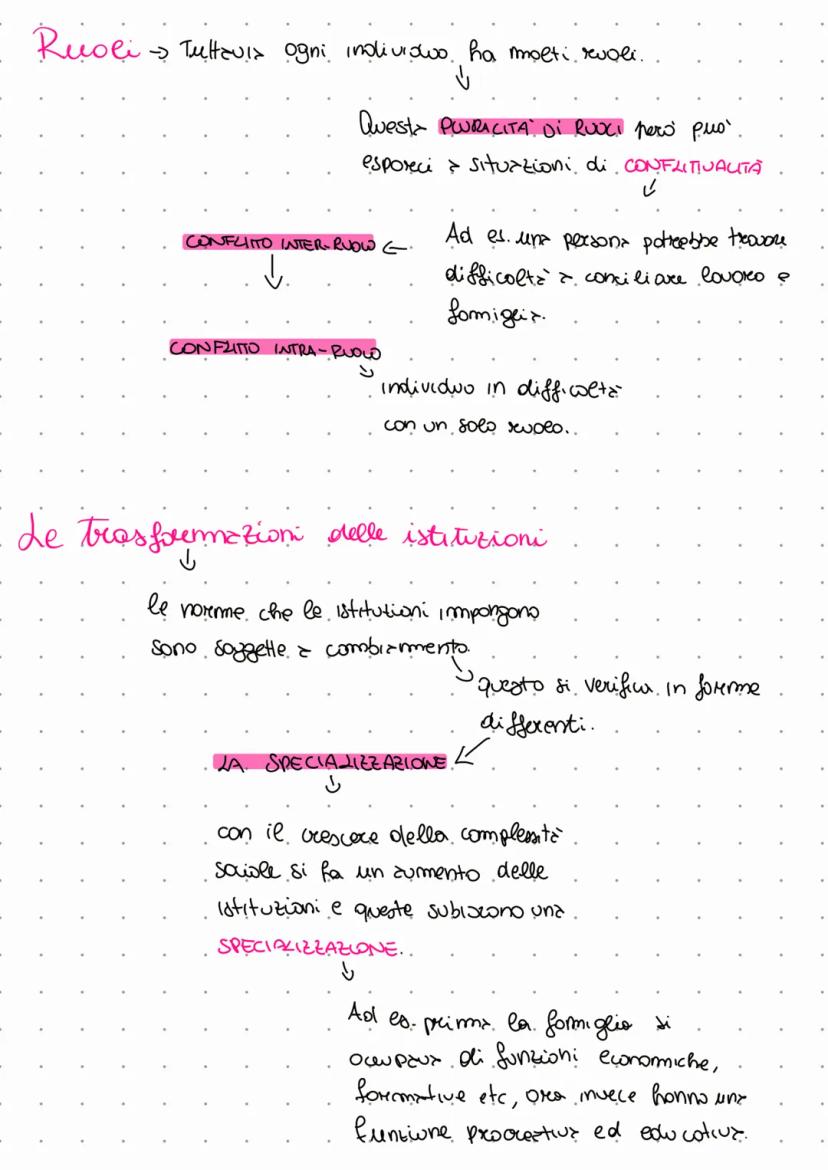 Ruoli → Tuttavia ogni individuo ha molti ruoli.
Questa PLURALITÀ DI RUOLI però può
esporci a situazioni di CONFLITTUALITÀ
Ad es. una persona potrebbe trovare
difficoltà a conciliare lavoro e
famiglia.
CONFLITTO INTER-RUOLO
CONFLITTO INTRA-RUOLO
individuo in difficoltà
con un solo ruolo.
Le trasformazioni delle istituzioni
le norme che le istituzioni impongono
sono soggette a cambiamento.
questo si verifica in forme
differenti.
LA SPECIALIZZAZIONE
con il crescere della complessità
sociale si ha un aumento delle
istituzioni e queste subiscono una
SPECIALIZZAZIONE.
Ad es. prima la famiglia si
occupava di funzioni economiche,
formative etc, ora invece hanno una
funzione procreativa ed educativa.